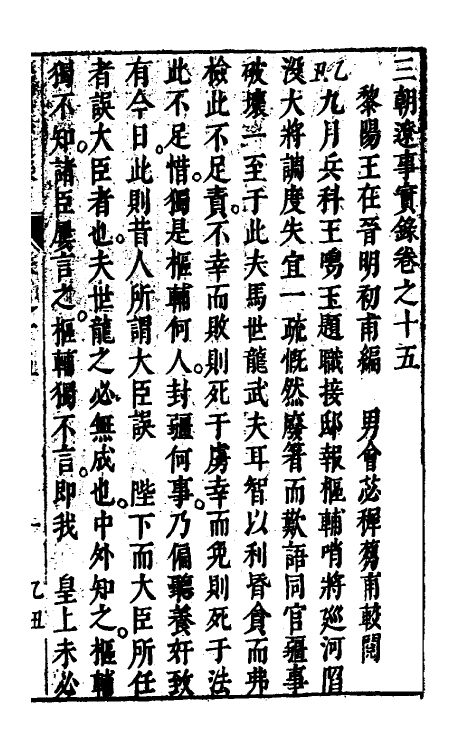 三朝遼事實錄卷之十五
黎陽王在晉明初甫編 男會苾穉蒭甫較閱
乙丑九月兵科王鳴玉題職接邸報樞輔哨將廵河陷
沒大將調度失宜一疏慨然廢箸而歎語同官疆事
破壞一至于此夫馬世龍武夫耳智以利昏貪而弗
檢此不足責不幸而敗則死于虜幸而免則死于法
此不足惜獨是樞輔何人封疆何事乃偏聽養奸致
有今日此則昔人所謂大臣誤 陛下而大臣所任
者誤大臣者也夫世龍之必無成也中外知之樞輔
獨不知諸臣屢言之樞輔獨不言即我 皇上未必
一 乙丑